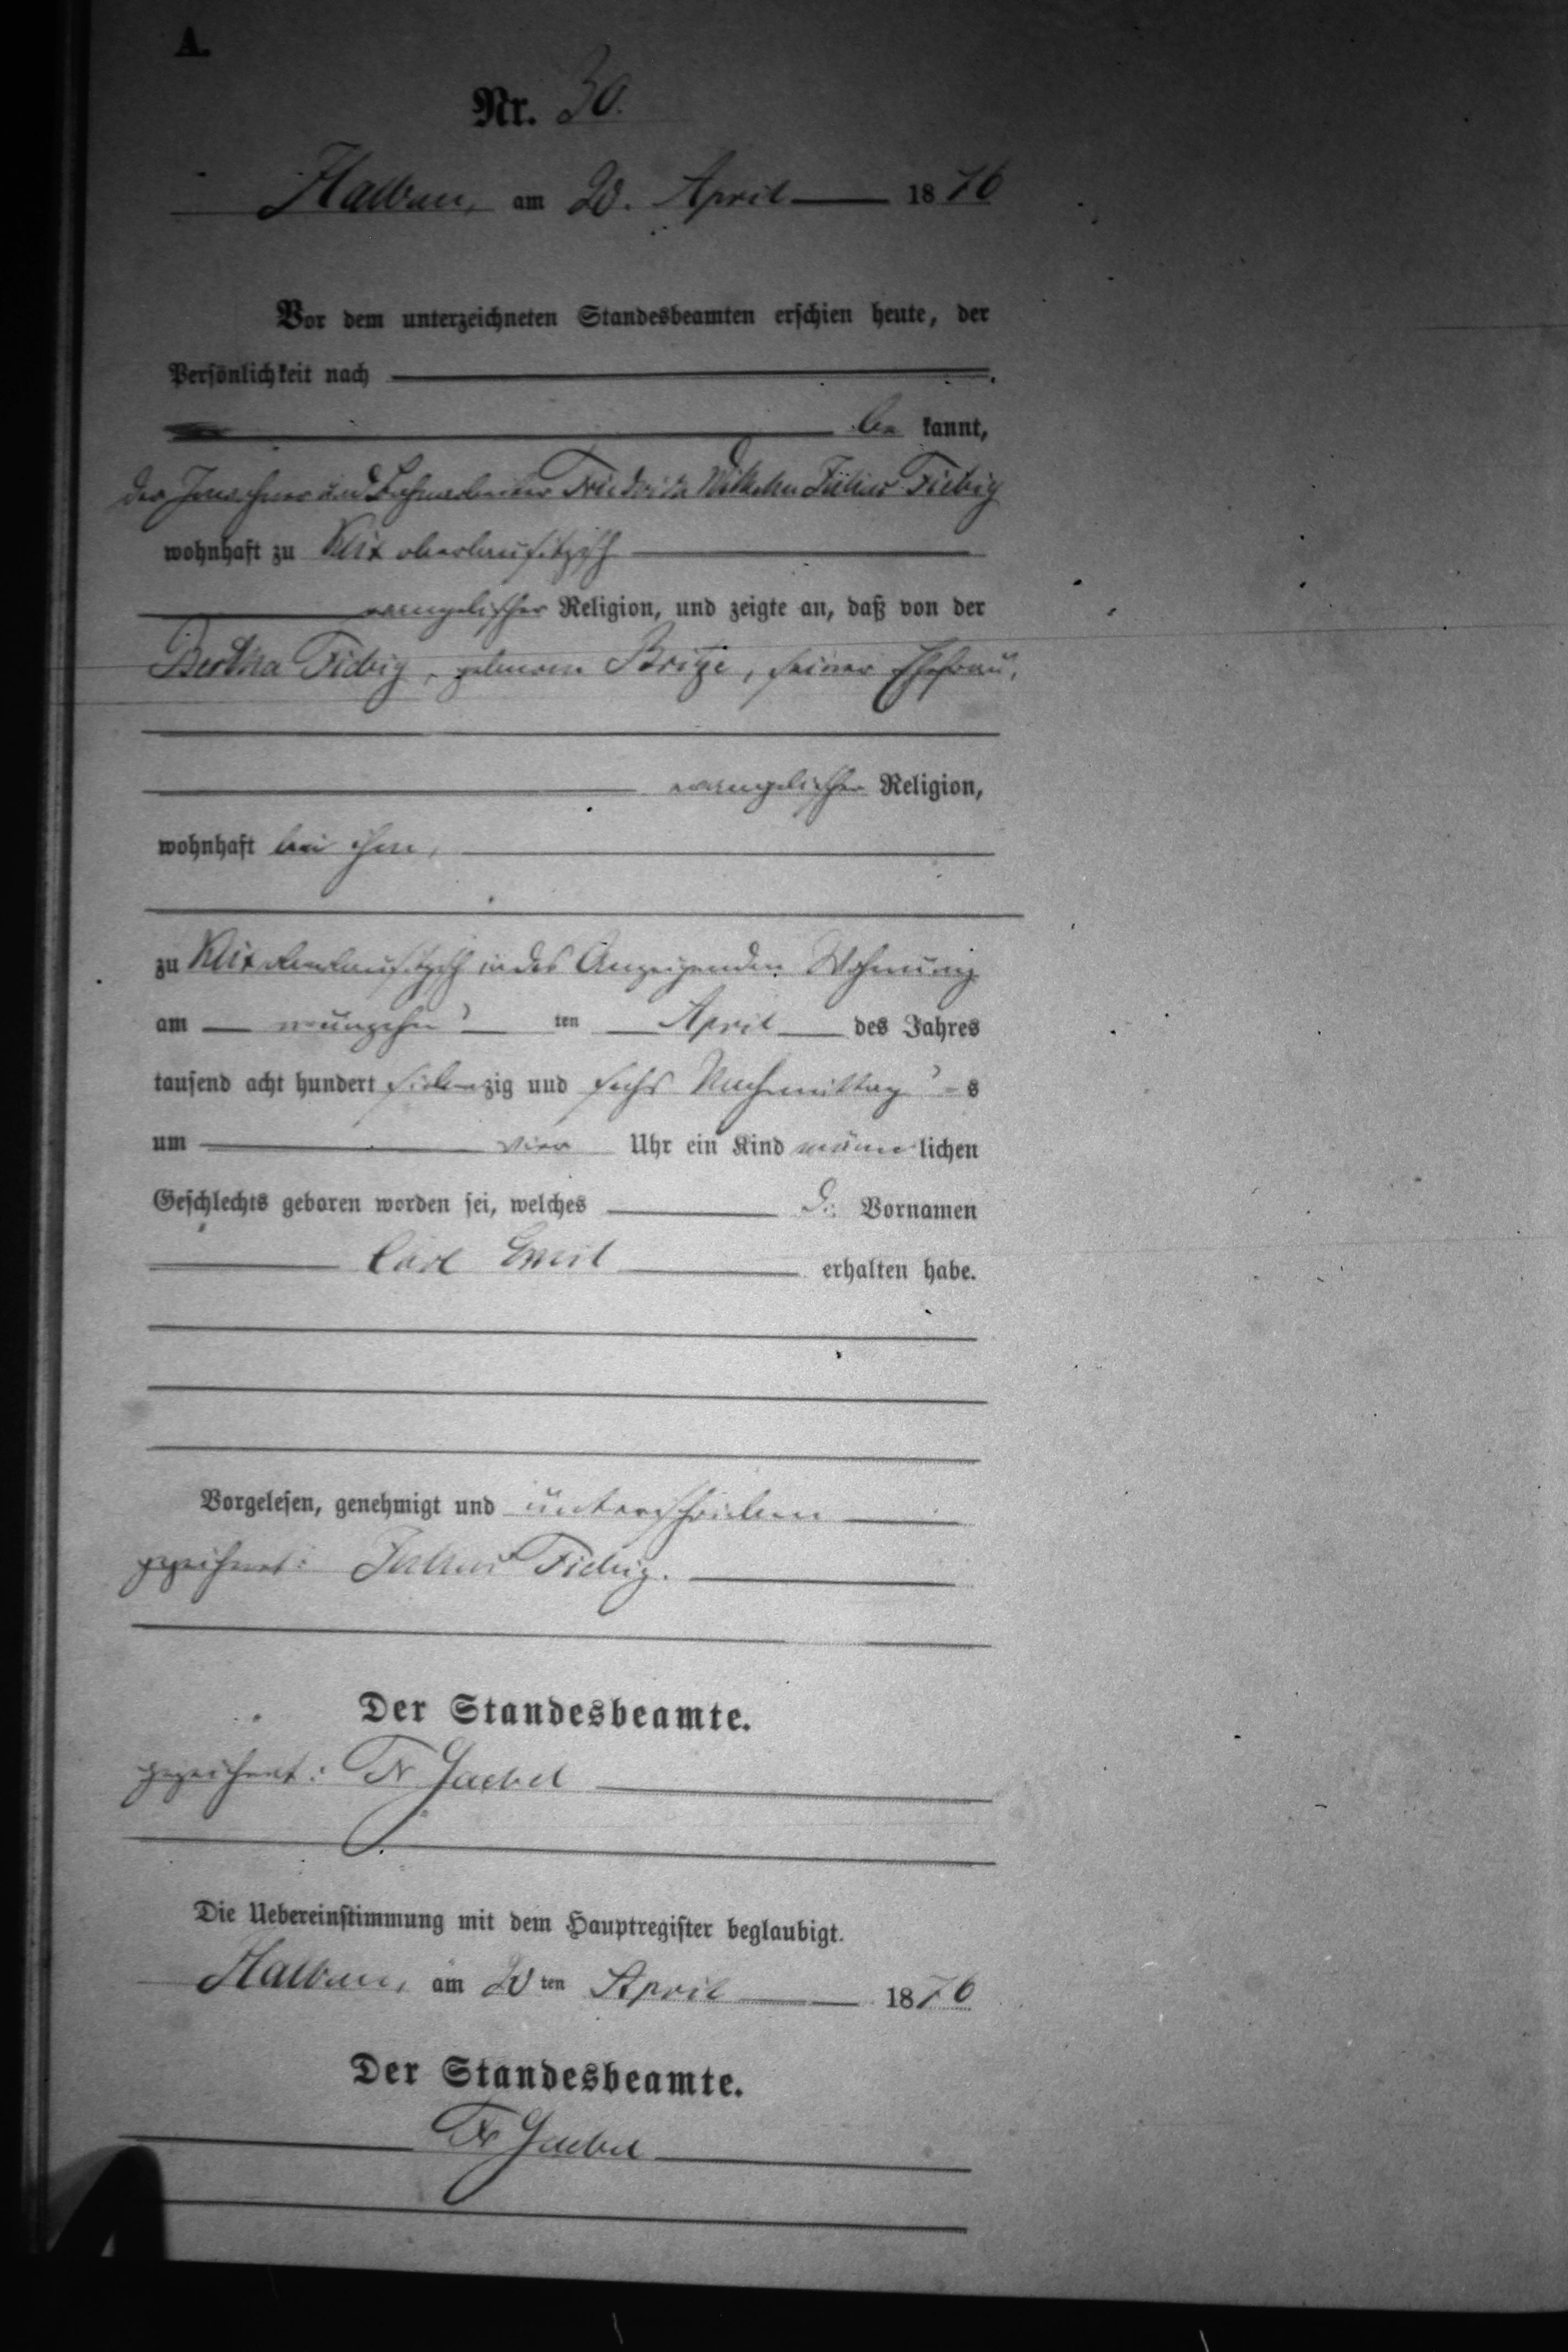 A.
Nr. 30.
Halbau, am 20. April 1876
Vor dem unterzeichneten Standesbeamten erschien heute, der
Persönlichkeit nach
be kannt,
der Inwohner und Friedrich Wilhelm Julius Fiebig
wohnhaft zu Klix oberlausitzisch
evangelischer Religion, und zeigte an, daß von der
Bertha Fiebig, geborne Britze, seiner Ehefrau,
evangelischer Religion,
wohnhaft bei ihm,
zu Klix oberlausitzisch in des Anzeigenden Wohnung
am neunzehn ten April des Jahres
tausend acht hundert siebenzig und sechs Nachmittag s
um vier Uhr ein Kind männ lichen
Geschlechts geboren worden sei, welches d: Vornamen
Carl Emil erhalten habe.
Vorgelesen, genehmigt und unterschrieben
gezeichnet: Julius Fiebig.
Der Standesbeamte.
gezeichnet: Fr Jaekel
Die Uebereinstimmung mit dem Hauptregister beglaubigt.
Halbau, am 20 ten April 1876
Der Standesbeamte.
Fr Jaekel